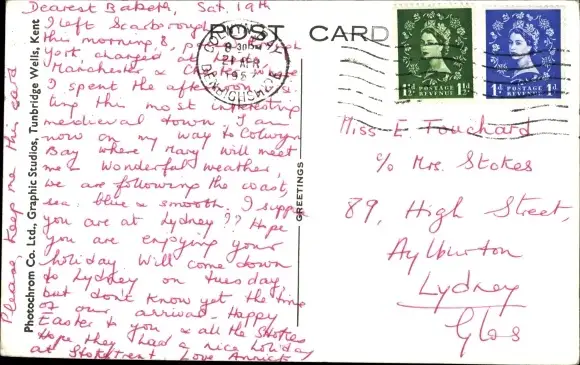 Dearest Babeth, Sat. 19th
I left Scarborough
this morning &
York, changed at
Manchester &
I spent the afternoon
ting this most interesting
medieval town I am
now on my way to Colwyn
Bay where Mary will meet
me. Wonderful weather,
we are following the coast,
sea: blue & smooth. I suppose
you are at Lydney?? Hope
you are enjoying your
holiday Will come down
to Lydney on Tuesday
but don't know yet the time
of our arrival. Happy
Easter to you & all the Stokes
Hope they had a nice holiday
at Love Annick
Please, keep me this card
Photochrom Co. Ltd., Graphic Studios, Tunbridge Wells, Kent
POST CARD
GREETINGS
8-30PM
21 APR
195
DENBIGHSHIRE
1½D 1½D
POSTAGE
REVENUE
1D 1D
POSTAGE
REVENUE
Miss E. Touchard
c/o Mrs. Stokes
89, High Street,
Aylburton
Lydney
Glos